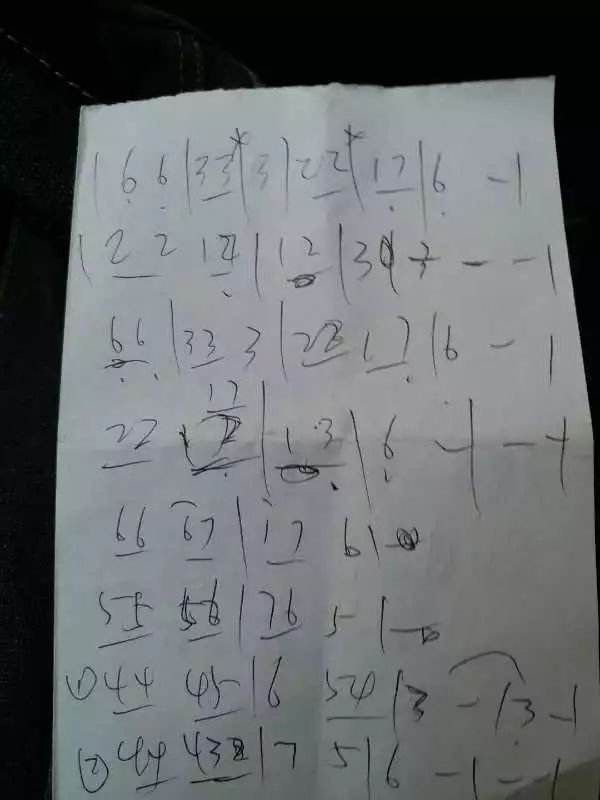 | 6 6 | 33 | 3 | 22 | 17 | 6 - |
| 2 2 17 | 12 | 3 - - |
66 | 33 3 | 22 17 | 6 - |
22 17 | 13 | 6 - | - |
66 67 | 17 6 | -
55 56 | 76 5 | -
① 44 45 | 6 54 | 3 - | 3 - |
② 44 432 | 7 5 | 6 - | - |